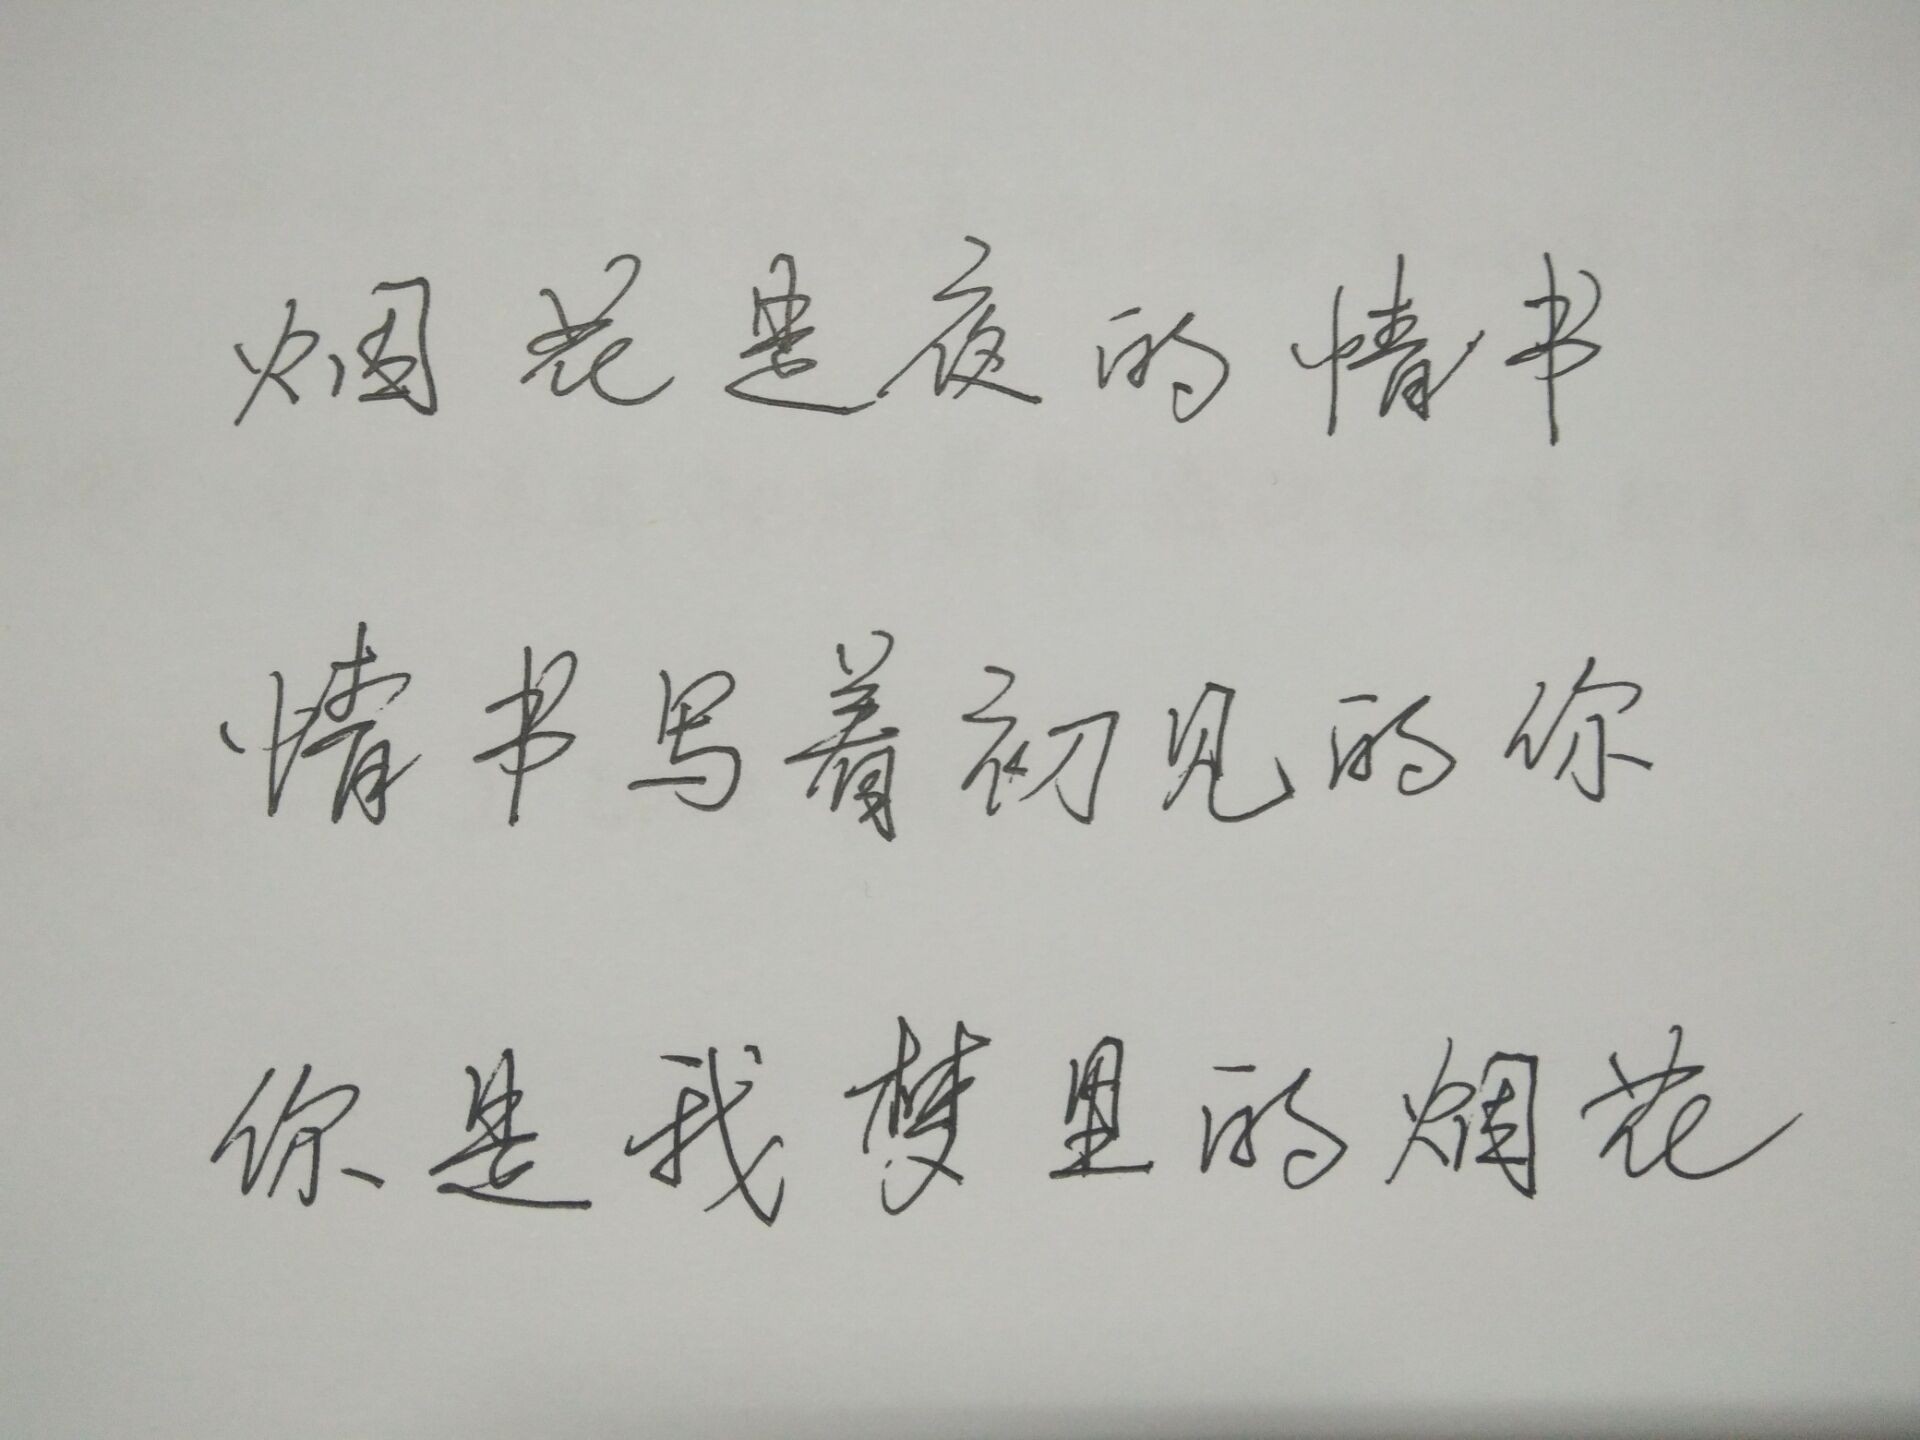 烟花是夜的情书
情书写着初见的你
你是我梦里的烟花